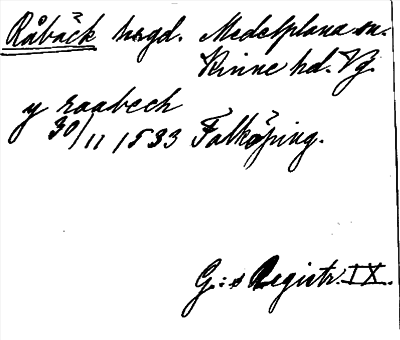 Råbäck hsgd. Medelplana sn.
Kinne hd. Vg.
y raabeck
30/11 1533 Falköping.
G:s Registr. IX.